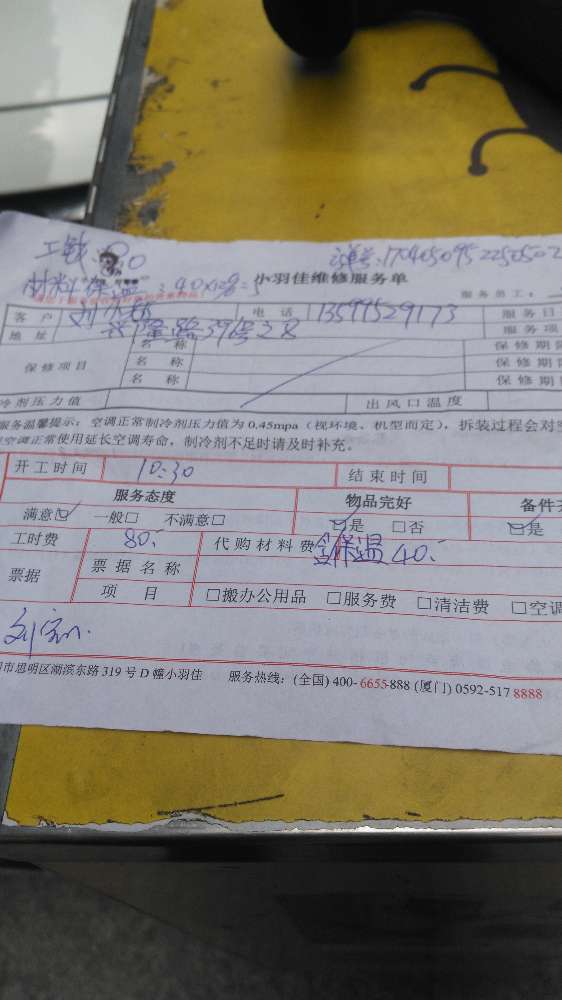 工钱:80
运单号:1704050952250502
材料(保温):40×1路=
小羽佳维修服务单
服务员工:
客户 刘 电话 13599529173 服务日
地址 兴隆路39号之 服务项
保修项目 名称 保修期
名称 保修期
名称 保修期
冷剂压力值 出风口温度
服务温馨提示:空调正常制冷剂压力值为0.45mpa(视环境、机型而定),拆装过程会对
空调正常使用延长空调寿命,制冷剂不足时请及时补充。
开工时间 10:30 结束时间
服务态度 物品完好 备件
满意☑ 一般□ 不满意□ ☑是 □否 ☑是
工时费 80. 代购材料费 保温40.
票据 票据名称
项目 □搬办公用品 □服务费 □清洁费 □空调
刘
市思明区湖滨东路319号D幢小羽佳 服务热线:(全国)400-6655-888 (厦门)0592-517 8888